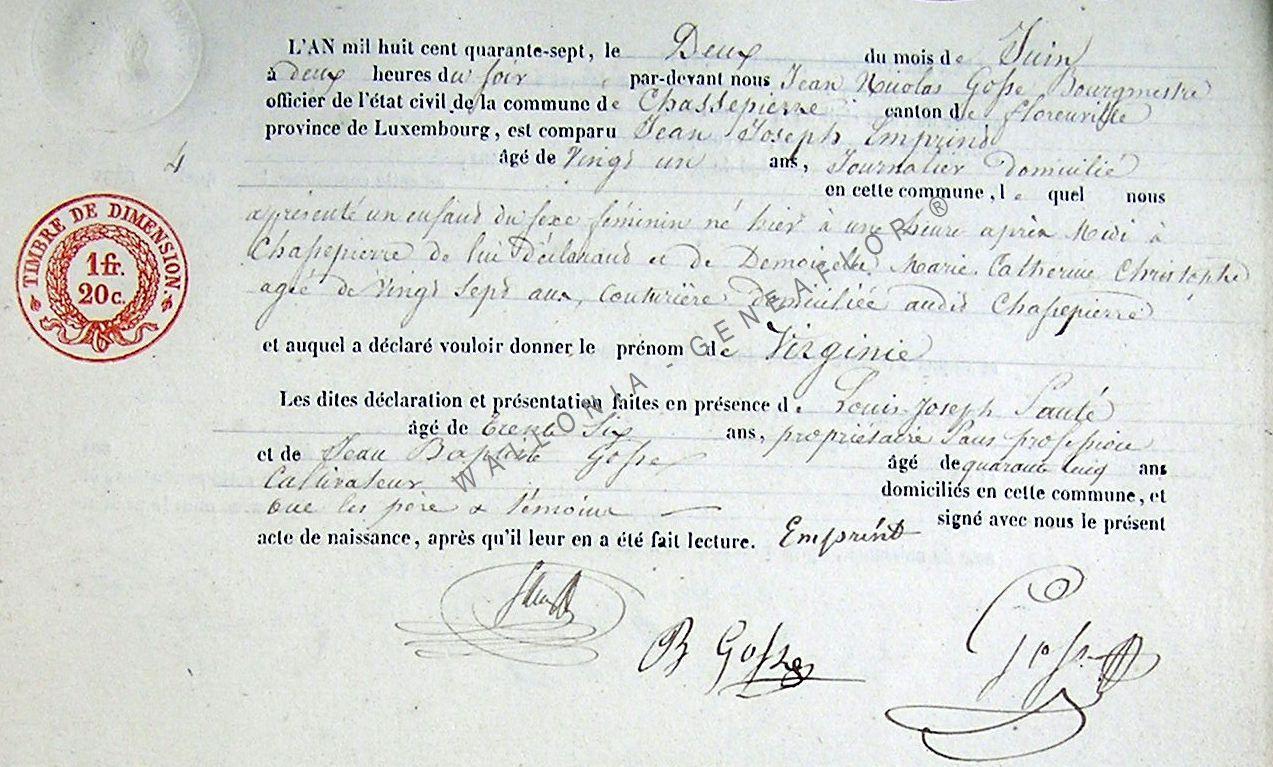 L'AN mil huit cent quarante-sept, le Deux du mois de Juin
à deux heures du soir par-devant nous Jean Nicolas Gosse Bourgmestre
officier de l'état civil de la commune de Chassepierre canton de florenville
province de Luxembourg, est comparu Jean Joseph Emprind
4
âgé de Vingt un ans, Journalier Domicilié
en cette commune, le quel nous
apresenté un enfant du sexe féminin né hier à une heure après Midi à
Chassepierre de lui Déclarant et de Demoiselle Marie Catherine Christophe
agée de Vingt Sept ans, Couturière domiciliée audit Chassepierre
et auquel a déclaré vouloir donner le prénom de Virginie
Les dites déclaration et présentation faites en présence de Louis Joseph Sauté
âgé de trente Six ans, propriétaire Sans profession
et de Jean Baptiste Gosse âgé de quarante cinq ans
Cultivateur domiciliés en cette commune, et
que les père & témoins signé avec nous le présent
acte de naissance, après qu'il leur en a été fait lecture. Emprint
B Gosse
Gosse
TIMBRE DE DIMENSION.
1 fr.
20 c.
WALLONIA - GENEAFLOR ®